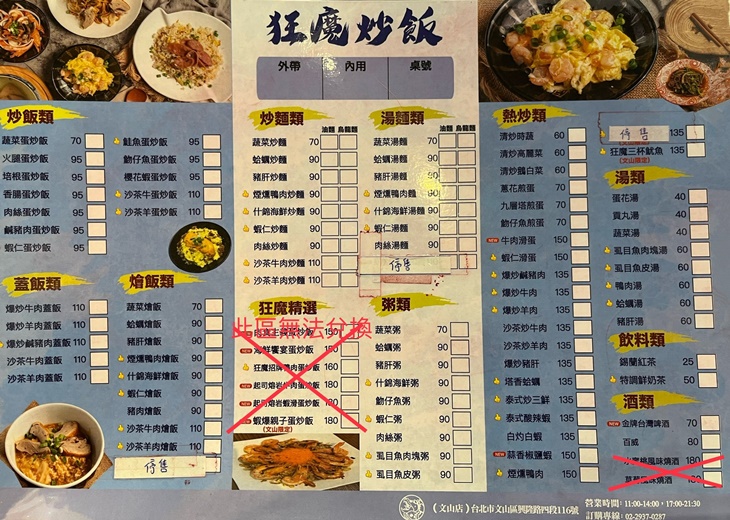 狂魔炒飯
外帶 內用 桌號
炒飯類
蔬菜蛋炒飯 70
火腿蛋炒飯 95
培根蛋炒飯 95
香腸蛋炒飯 95
肉絲蛋炒飯 95
鹹豬肉蛋炒飯 95
蝦仁蛋炒飯 95
鮭魚蛋炒飯 95
魩仔魚蛋炒飯 95
櫻花蝦蛋炒飯 95
沙茶牛蛋炒飯 110
沙茶羊蛋炒飯 110
蓋飯類
爆炒牛肉蓋飯 110
爆炒羊肉蓋飯 110
爆炒鹹豬肉蓋飯 110
沙茶牛肉蓋飯 110
沙茶羊肉蓋飯 110
燴飯類
蔬菜燴飯 70
蛤蠣燴飯 90
豬肝燴飯 90
煙燻鴨肉燴飯 90
什錦海鮮燴飯 90
蝦仁燴飯 90
豬肉燴飯 90
沙茶牛肉燴飯 110
沙茶羊肉燴飯 110
停售
炒麵類
油麵 烏龍麵
蔬菜炒麵 70
蛤蠣炒麵 90
豬肝炒麵 90
煙燻鴨肉炒麵 90
什錦海鮮炒麵 90
蝦仁炒麵 90
肉絲炒麵 90
沙茶牛肉炒麵 110
沙茶羊肉炒麵 110
湯麵類
油麵 烏龍麵
蔬菜湯麵 70
蛤蠣湯麵 90
豬肝湯麵 90
煙燻鴨肉麵 90
什錦海鮮湯麵 90
蝦仁湯麵 90
肉絲湯麵 90
停售
狂魔精選
此區無法兌換
NEW 150
NEW 海鮮饗宴蛋炒飯
狂魔招牌鴨肉蛋炒飯 160
NEW 起司熔岩牛肉蛋炒飯 180
NEW 起司熔岩蝦滑蛋炒飯 180
NEW 蝦爆親子蛋炒飯 180
(文山限定)
粥類
蔬菜粥 70
蛤蠣粥 90
豬肝粥 90
什錦海鮮粥 90
魩仔魚粥 90
蝦仁粥 90
肉絲粥 90
虱目魚肉塊粥 90
虱目魚皮粥 90
熱炒類
清炒時蔬 60
清炒高麗菜 60
清炒醜白菜 60
蔥花煎蛋 70
九層塔煎蛋 70
魩仔魚煎蛋 70
NEW 牛肉滑蛋 150
NEW 蝦仁滑蛋 150
爆炒鹹豬肉 135
爆炒牛肉 135
爆炒羊肉 135
沙茶炒牛肉 135
沙茶炒羊肉 135
爆炒豬肝 135
塔香蛤蠣 135
泰式炒三鮮 135
泰式酸辣蝦 135
白灼白蝦 135
NEW 蒜香椒鹽蝦 150
煙燻鴨肉 150
停售 135
(文山限定)
狂魔三杯魷魚 135
(文山限定)
湯類
蛋花湯 40
貢丸湯 40
蔬菜湯 40
虱目魚肉塊湯 60
虱目魚皮湯 60
鴨肉湯 60
蛤蠣湯 60
豬肝湯 60
飲料類
錫蘭紅茶 25
特調鮮奶茶 50
酒類
NEW 金牌台灣啤酒 70
百威 80
水蜜桃風味燒酒 180
草莓風味燒酒 180
(文山店)台北市文山區興隆路四段116號
營業時間:11:00-14:00,17:00-21:30
訂購專線:02-2937-0287